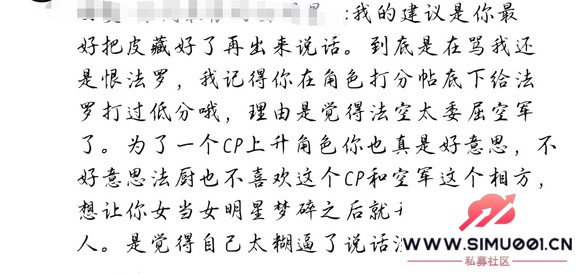 :我的建议是你最
好把皮藏好了再出来说话。到底是在骂我还
是恨法罗，我记得你在角色打分帖底下给法
罗打过低分哦，理由是觉得法空太委屈空军
了。为了一个CP上升角色你也真是好意思，不
好意思法厨也不喜欢这个CP和空军这个相方，
想让你女当女明星梦碎之后就
人。是觉得自己太糊逼了说话
WWW.SIMU001.CN
私募社区